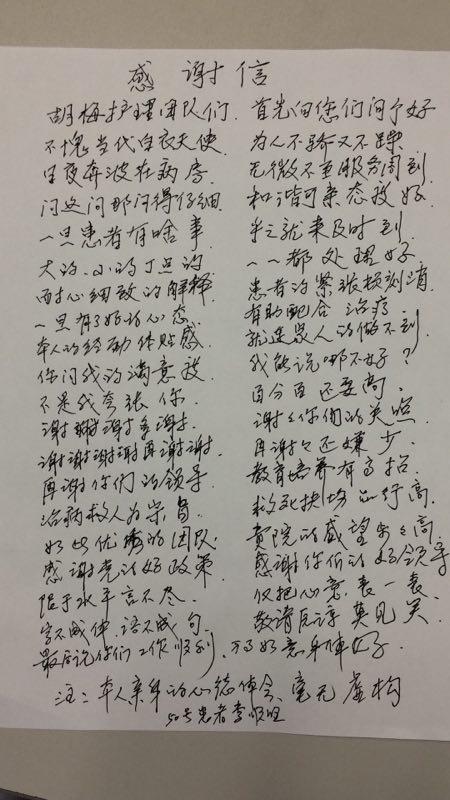 感谢信
胡梅护理团队们. 首先向您们问个好
不愧当代白衣天使 为人不骄又不躁.
日夜奔波在病房 无微不至服务周到
问这问那问得仔细 和谐可亲态度好.
一旦患者有啥事 就来及时到.
大的.小的丁点的 一一都处理好
耐心细致的解释 患者的紧张顿刻消
一旦有了好的心态. 有助配合治疗.
本人的体贴感 就是家人的做不到
你问我的满意度 我能说哪不好?
不是我夸张你 百分百还要高.
谢谢谢谢多谢谢. 谢谢你们的关照
谢谢谢谢再谢谢. 再谢谢还嫌少.
再谢你们的领导 教育培养有高招
治病救人为宗旨 救死扶伤品行高.
好比优秀的团队. 贵院的威望步步高
感谢党的好政策 感谢你们的好领导
限于水平言不尽 仅把心意表一表
字不成体.语不成句. 敬请莫见笑
最后说你们工作顺利.身体好.
注:本人亲身的心德体会,毫无虚构
50号患者李顺